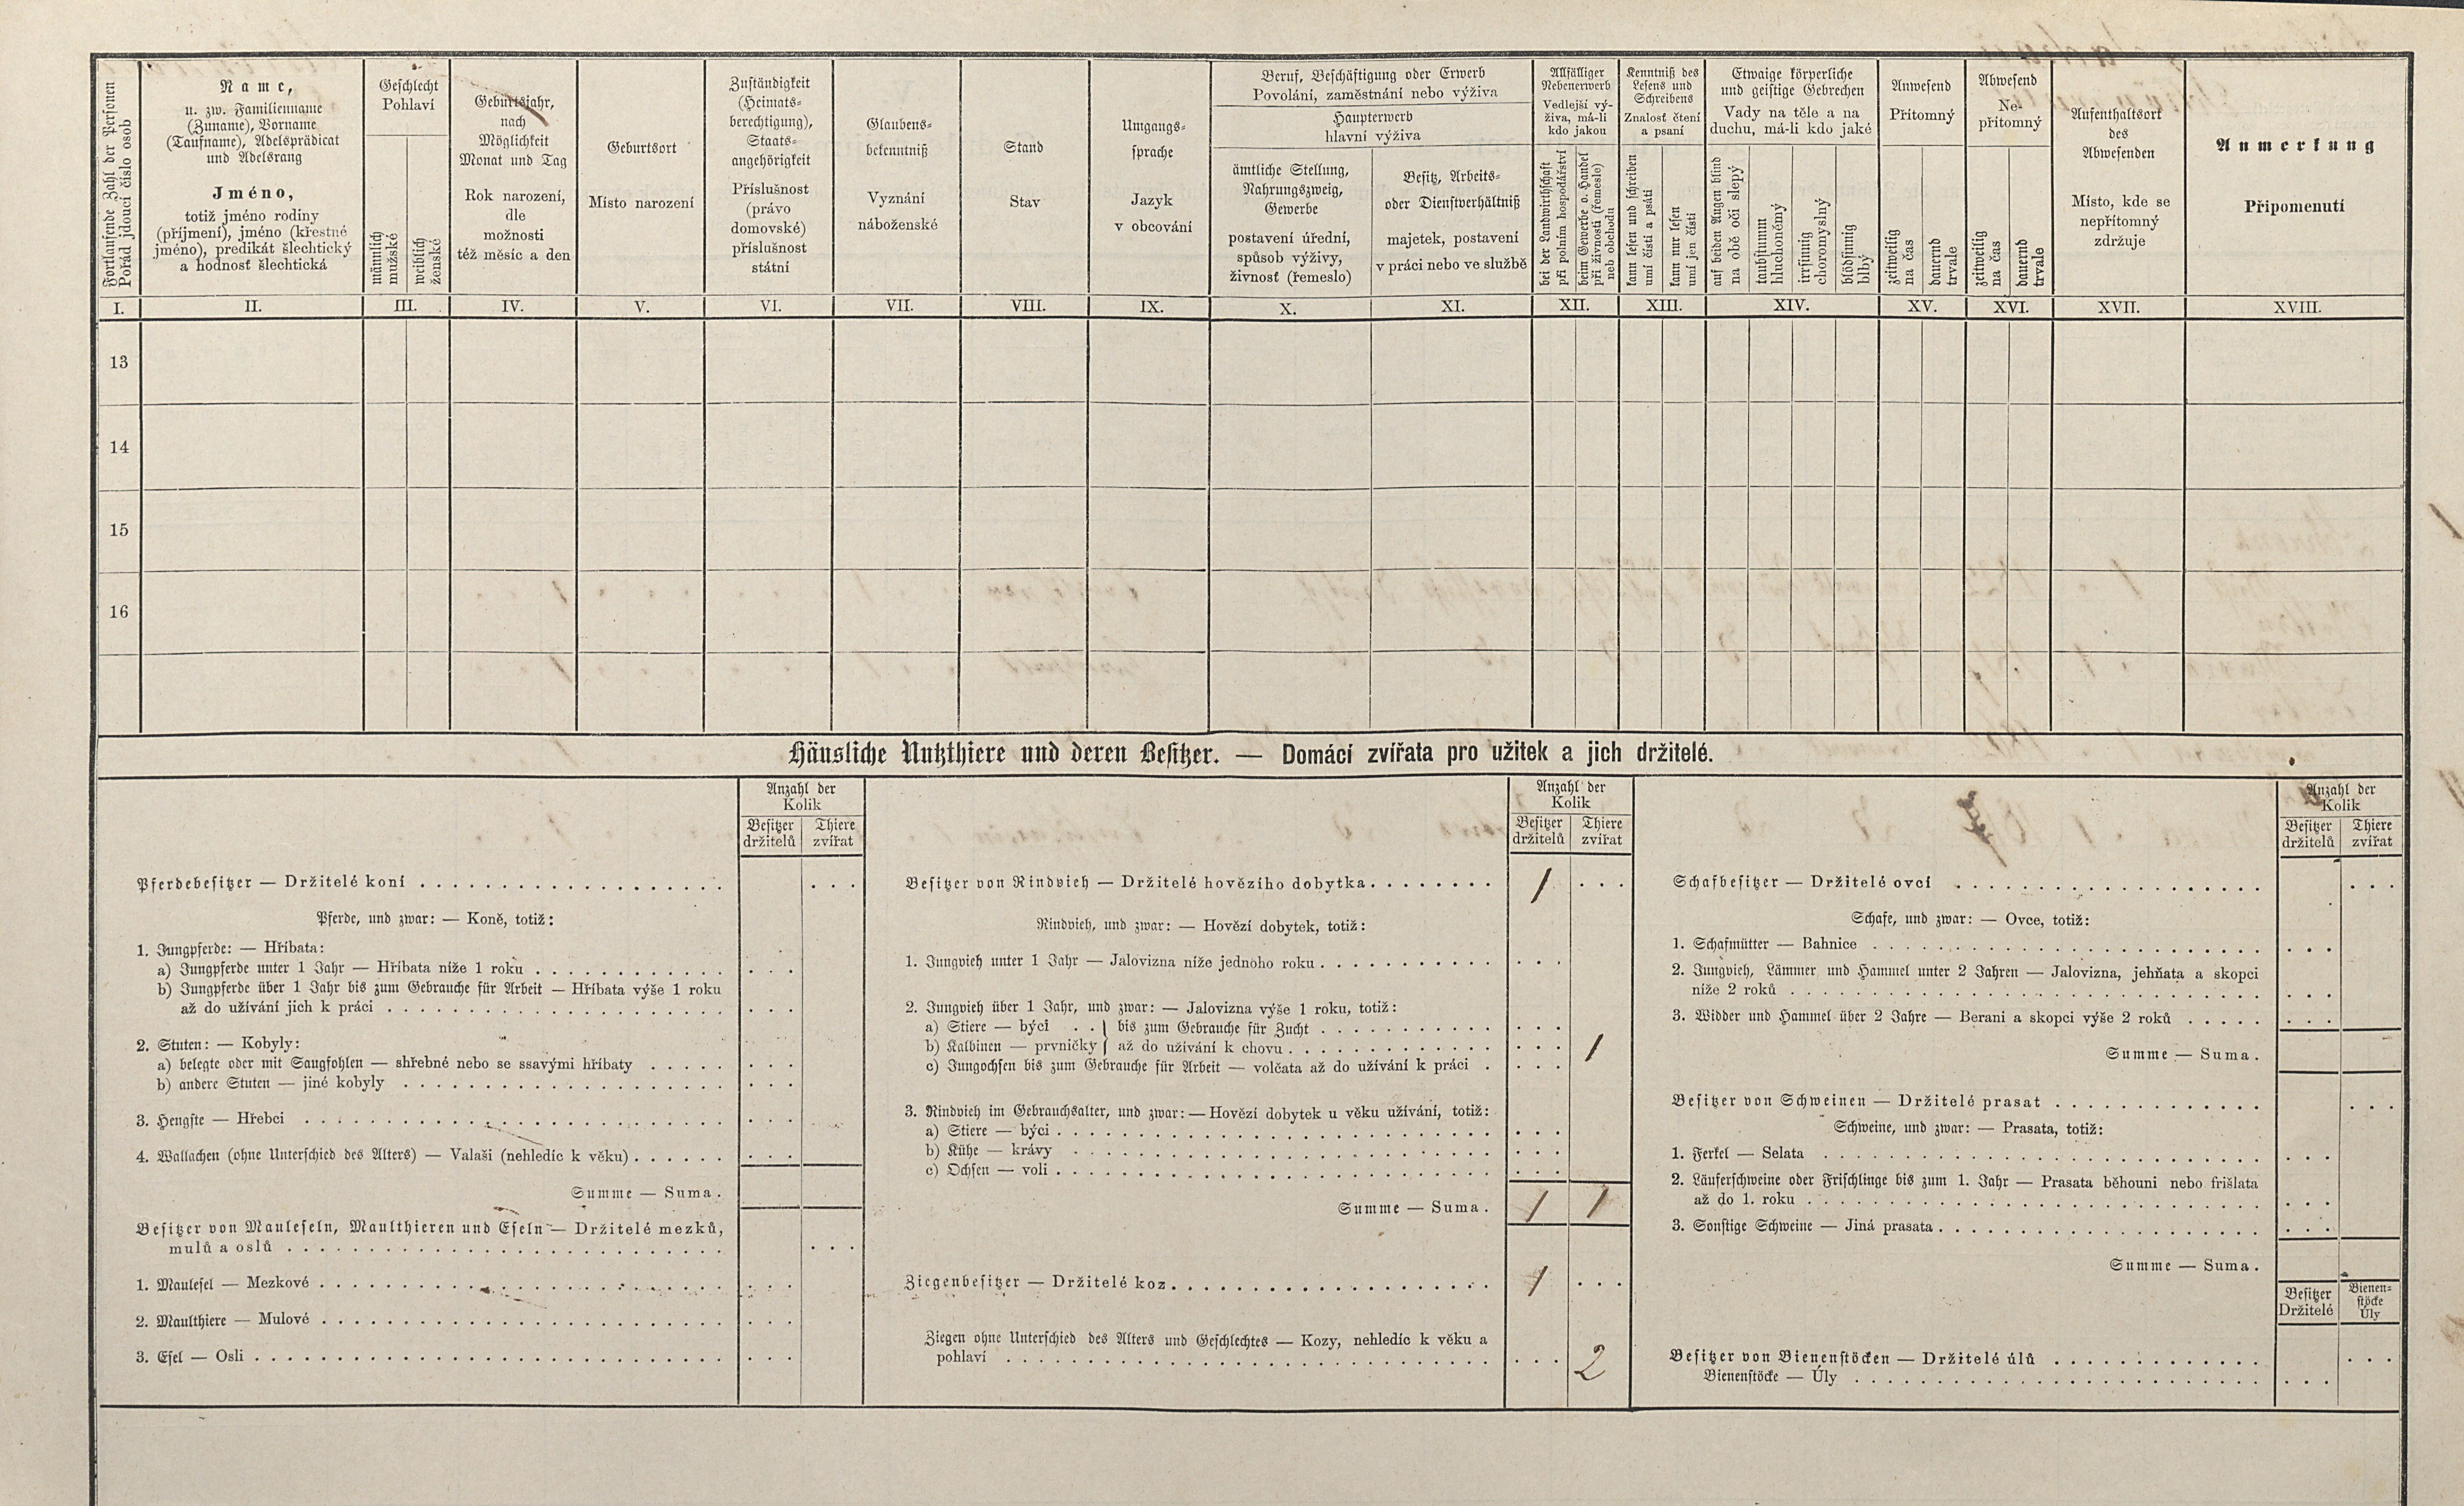 Fortlaufende Zahl der Personen
Pořád jdoucí číslo osob
Name,
u. zw. Familienname
(Zuname), Vorname
(Taufname), Adelsprädicat
und Adelsrang
Jméno,
totiž jméno rodiny
(příjmení), jméno (křestné
jméno), predikát šlechtický
a hodnosť šlechtická
Geschlecht
Pohlaví
männlich
mužské
weiblich
ženské
Geburtsjahr,
nach
Möglichkeit
Monat und Tag
Rok narození,
dle
možnosti
též měsíc a den
Geburtsort
Místo narození
Zuständigkeit
(Heimats-
berechtigung),
Staats-
angehörigkeit
Příslušnost
(právo
domovské)
příslušnost
státní
Glaubens-
bekenntniß
Vyznání
náboženské
Stand
Stav
Umgangs-
sprache
Jazyk
v obcování
Beruf, Beschäftigung oder Erwerb
Povolání, zaměstnání nebo výživa
Haupterwerb
hlavní výživa
ämtliche Stellung,
Nahrungszweig,
Gewerbe
postavení úřední,
spůsob výživy,
živnosť (řemeslo)
Besitz, Arbeits-
oder Dienstverhältniß
majetek, postavení
v práci nebo ve službě
Allfälliger
Nebenerwerb
Vedlejší vý-
živa, má-li
kdo jakou
bei der Landwirthschaft
při polním hospodářství
beim Gewerbe o. Handel
při živnosti (řemesle)
neb obchodu
Kenntniß des
Lesens und
Schreibens
Znalosť čtení
a psaní
kann lesen und schreiben
umí čísti a psáti
kann nur lesen
umí jen čísti
Etwaige körperliche
und geistige Gebrechen
Vady na těle a na
duchu, má-li kdo jaké
auf beiden Augen blind
na obě oči slepý
taubstumm
hluchoněmý
irrsinnig
choromyslný
blödsinnig
blbý
Anwesend
Přítomný
zeitweilig
na čas
dauernd
trvale
Abwesend
Ne-
přítomný
zeitweilig
na čas
dauernd
trvale
Aufenthaltsort
des
Abwesenden
Místo, kde se
nepřítomný
zdržuje
Anmerkung
Připomenutí
I. II. III. IV. V. VI. VII. VIII. IX. X. XI. XII. XIII. XIV. XV. XVI. XVII. XVIII.
13
14
15
16
Häusliche Nutzthiere und deren Besitzer. — Domácí zvířata pro užitek a jich držitelé.
Anzahl der
Kolik
Besitzer
držitelů
Thiere
zvířat
Pferdebesitzer — Držitelé koní . . .
Pferde, und zwar: — Koně, totiž:
1. Jungpferde: — Hříbata:
a) Jungpferde unter 1 Jahr — Hříbata níže 1 roku . . .
b) Jungpferde über 1 Jahr bis zum Gebrauche für Arbeit — Hříbata výše 1 roku
až do užívání jich k práci . . .
2. Stuten: — Kobyly:
a) belegte oder mit Saugfohlen — shřebné nebo se ssavými hříbaty . . .
b) andere Stuten — jiné kobyly . . .
3. Hengste — Hřebci . . .
4. Wallachen (ohne Unterschied des Alters) — Valaši (nehledíc k věku) . . .
Summe — Suma.
Besitzer von Mauleseln, Maulthieren und Eseln — Držitelé mezků,
mulů a oslů . . .
1. Maulesel — Mezkové . . .
2. Maulthiere — Mulové . . .
3. Esel — Osli . . .
Anzahl der
Kolik
Besitzer
držitelů
Thiere
zvířat
Besitzer von Rindvieh — Držitelé hovězího dobytka . . . 1
Rindvieh, und zwar: — Hovězí dobytek, totiž:
1. Jungvieh unter 1 Jahr — Jalovizna níže jednoho roku . . .
2. Jungvieh über 1 Jahr, und zwar: — Jalovizna výše 1 roku, totiž:
a) Stiere — býci . . } bis zum Gebrauche für Zucht . . .
b) Kalbinen — prvničky } až do užívání k chovu . . . 1
c) Jungochsen bis zum Gebrauche für Arbeit — volčata až do užívání k práci . . .
3. Rindvieh im Gebrauchsalter, und zwar: — Hovězí dobytek u věku užívání, totiž:
a) Stiere — býci . . .
b) Kühe — krávy . . .
c) Ochsen — voli . . .
Summe — Suma. 1 1
Ziegenbesitzer — Držitelé koz . . . 1
Ziegen ohne Unterschied des Alters und Geschlechtes — Kozy, nehledíc k věku a
pohlaví . . . 2
Anzahl der
Kolik
Besitzer
držitelů
Thiere
zvířat
Schafbesitzer — Držitelé ovcí . . .
Schafe, und zwar: — Ovce, totiž:
1. Schafmütter — Bahnice . . .
2. Jungvieh, Lämmer und Hammel unter 2 Jahren — Jalovizna, jehňata a skopci
níže 2 roků . . .
3. Widder und Hammel über 2 Jahre — Berani a skopci výše 2 roků . . .
Summe — Suma.
Besitzer von Schweinen — Držitelé prasat . . .
Schweine, und zwar: — Prasata, totiž:
1. Ferkel — Selata . . .
2. Läuferschweine oder Frischlinge bis zum 1. Jahr — Prasata běhouni nebo frišlata
až do 1. roku . . .
3. Sonstige Schweine — Jiná prasata . . .
Summe — Suma.
Besitzer
Držitelé
Bienen-
stöcke
Úly
Besitzer von Bienenstöcken — Držitelé úlů . . .
Bienenstöcke — Úly . . .